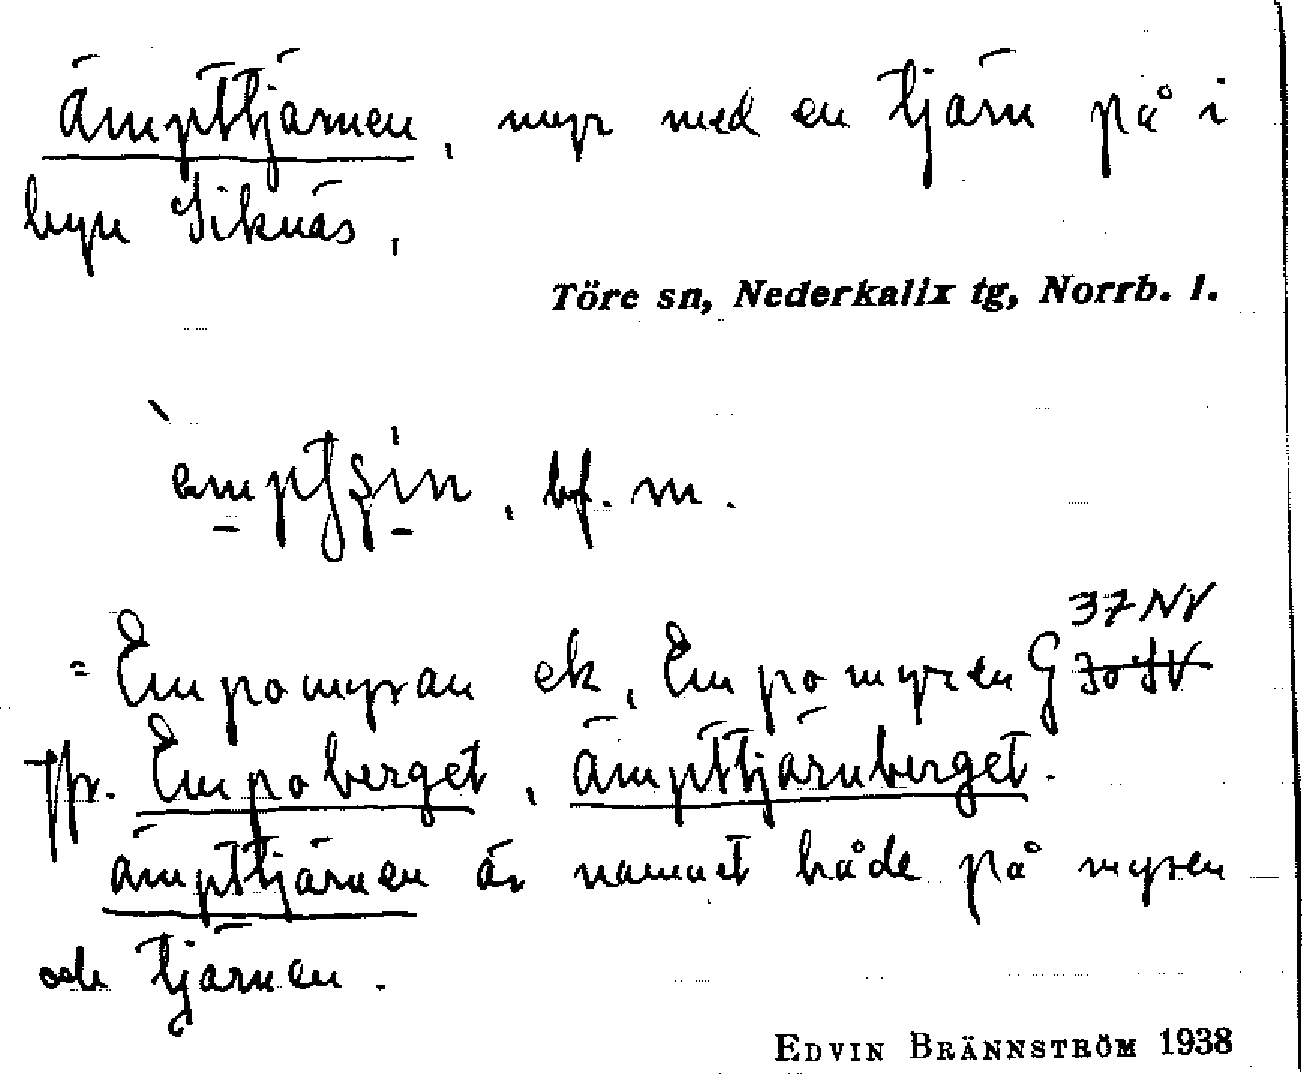 ämpttjärnen, myr med en tjärn på i
byn Siknäs,
Töre sn, Nederkalix tg, Norrb. l.
bf. m.
37 NV
= Empomyran ek, Empomyren G
jfr. Empoberget, ämpttjärnberget.
ämpttjärnen är namnet både på myren
och tjärnen.
EDVIN BRÄNNSTRÖM 1938